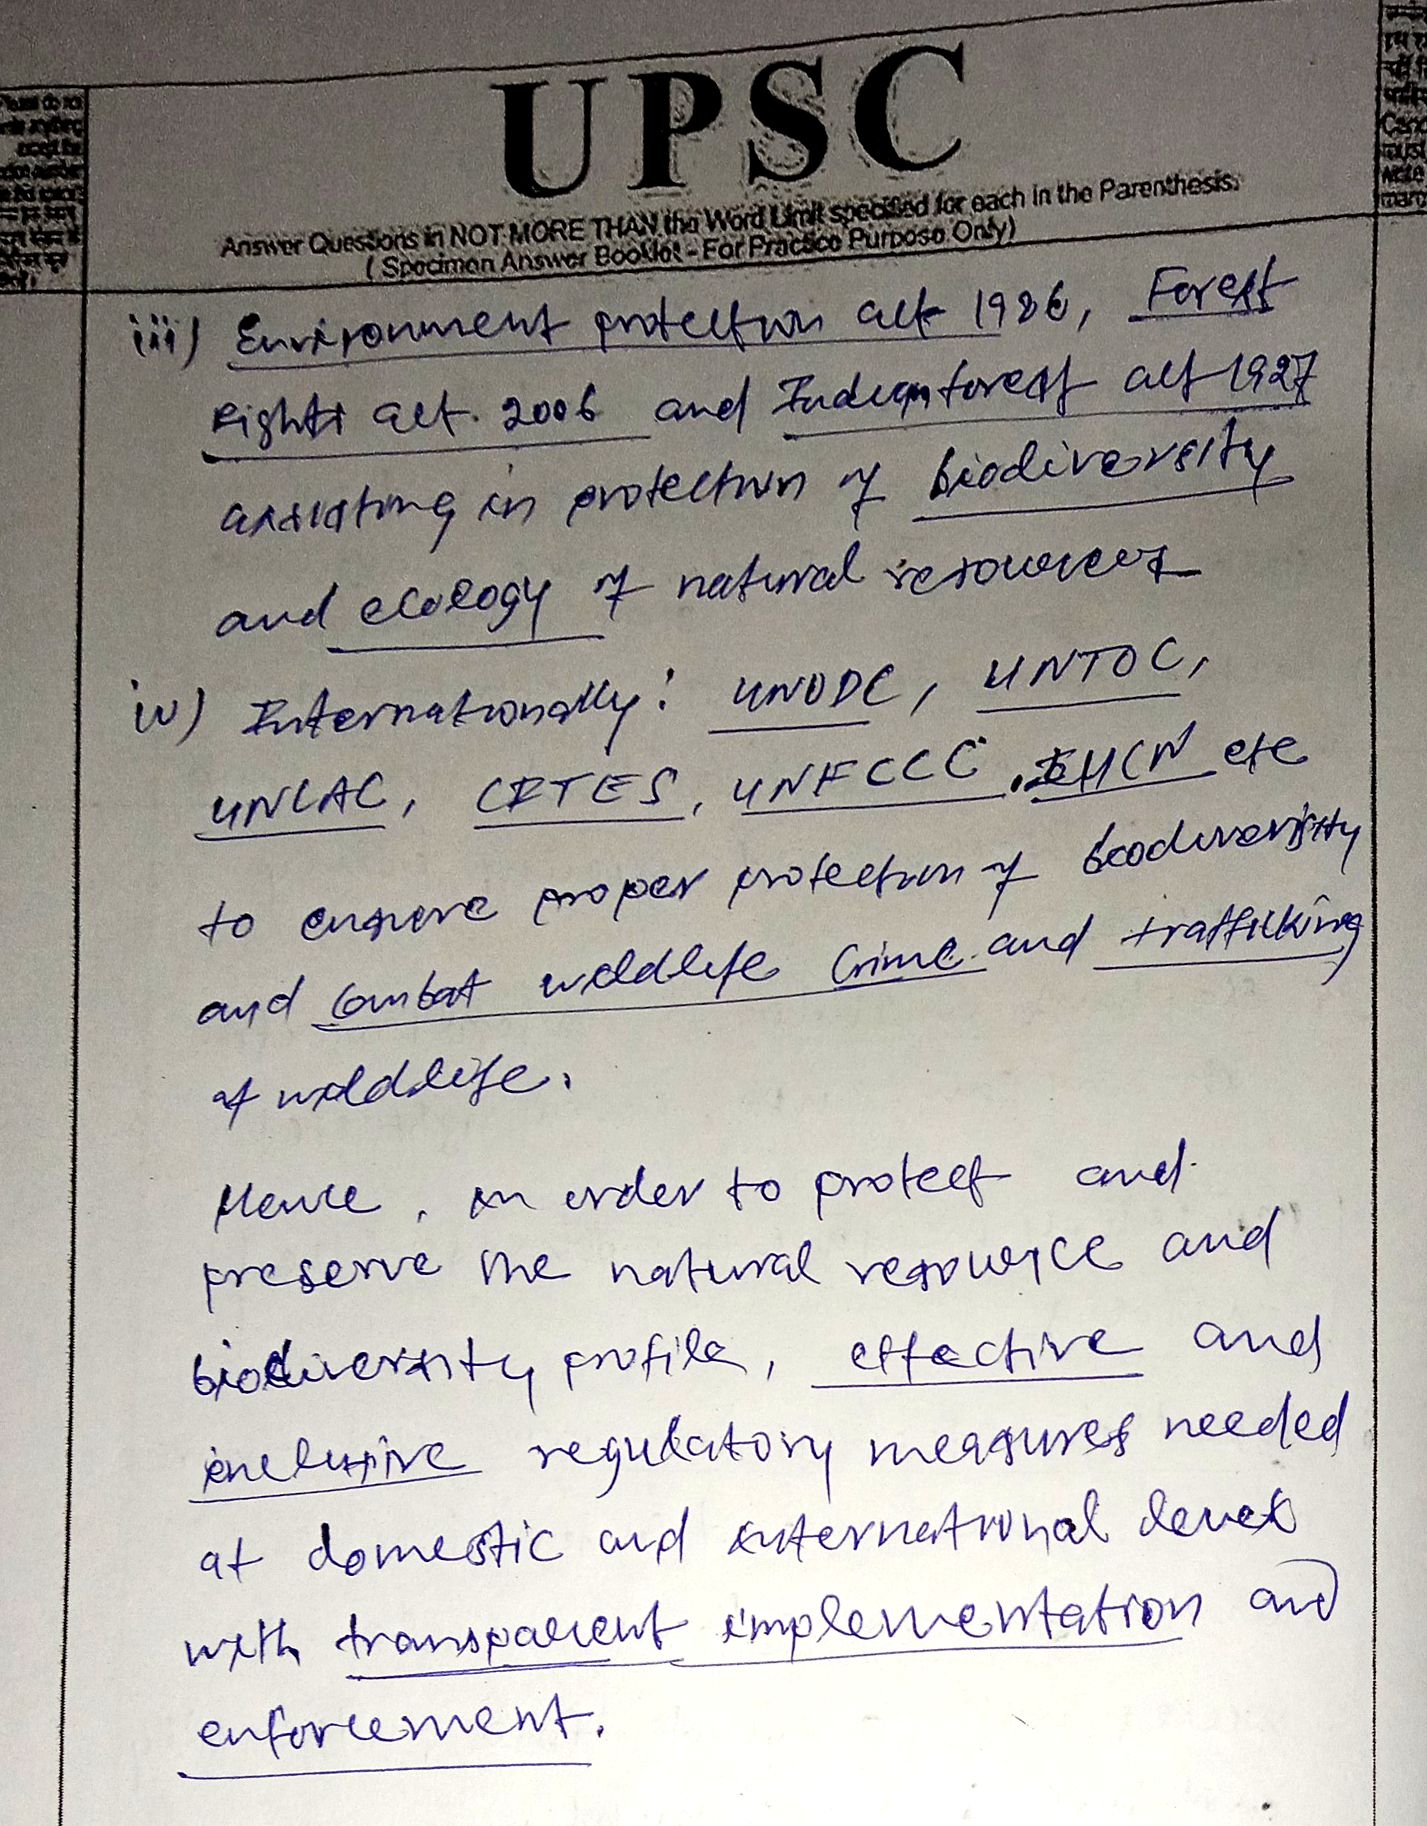 UPSC
Answer Questions in NOT MORE THAN the Word Limit specified for each in the Parenthesis.
( Specimen Answer Booklet - For Practice Purpose Only)
iii) Environment protection act 1986, Forest
rights act. 2006 and Indian forest act 1927
assisting in protection of biodiversity
and ecology of natural resources
iv) Internationally: UNODC, UNTOC,
UNCAC, CITES, UNFCCC, IUCN etc
to ensure proper protection of biodiversity
and combat wildlife crime and trafficking
of wildlife.
Hence, in order to protect and
preserve the natural resource and
biodiversity profile, effective and
inclusive regulatory measures needed
at domestic and international level
with transparent implementation and
enforcement.